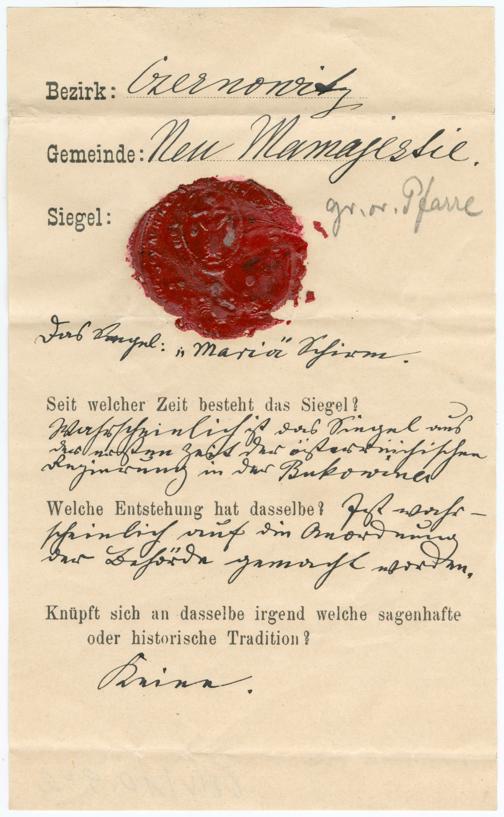 Bezirk: Czernowitz
Gemeinde: Neu Mamajestie.
Siegel:
gr. or. Pfarre
Das Siegel: „Mariä Schirm.
Seit welcher Zeit besteht das Siegel?
Wahrscheinlich ist das Siegel aus
der ersten Zeit der österreichischen
Regierung in der Bukowina
Welche Entstehung hat dasselbe? Ist wahr-
scheinlich auf die Anordnung
der Behörde gemacht worden.
Knüpft sich an dasselbe irgend welche sagenhafte
oder historische Tradition?
Keine.